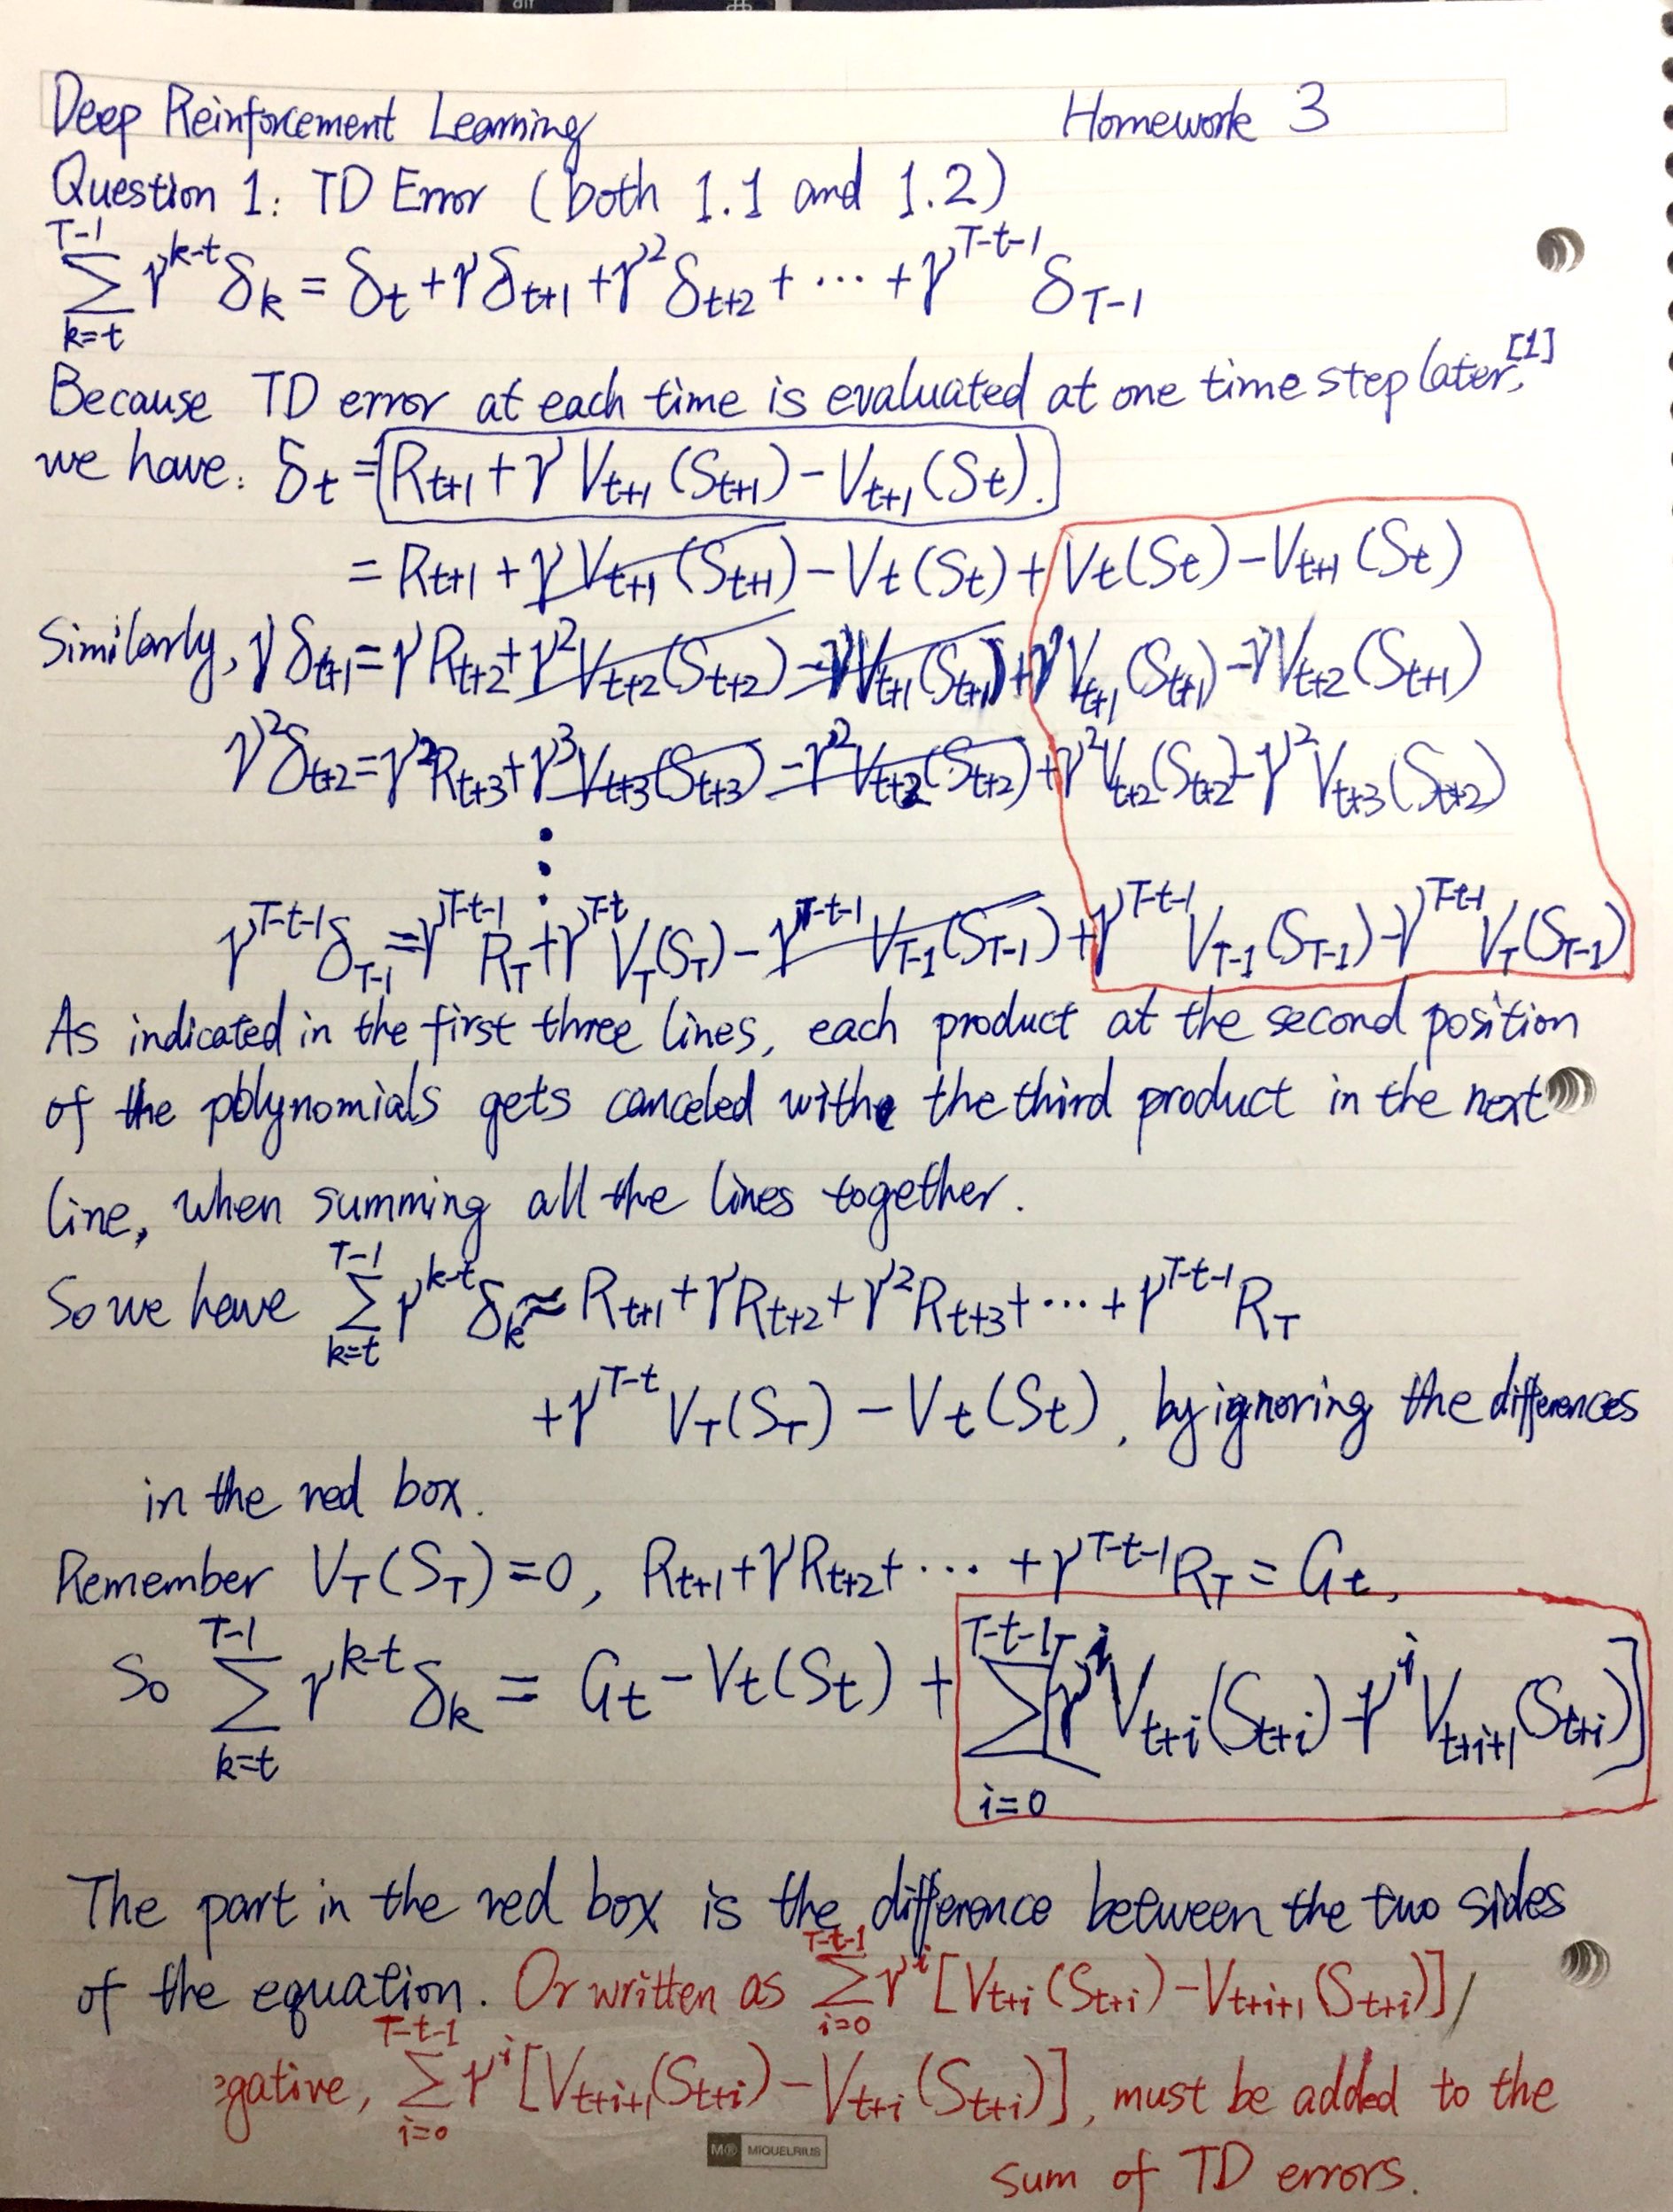 Deep Reinforcement Learning Homework 3
Question 1: TD Error (both 1.1 and 1.2)
∑_{k=t}^{T-1} γ^{k-t} δ_k = δ_t + γδ_{t+1} + γ²δ_{t+2} + ⋯ + γ^{T-t-1} δ_{T-1}
Because TD error at each time is evaluated at one time step later,[1]
we have: δ_t = R_{t+1} + γ V_{t+1}(S_{t+1}) - V_{t+1}(S_t).
= R_{t+1} + γ V_{t+1}(S_{t+1}) - V_t(S_t) + V_t(S_t) - V_{t+1}(S_t)
Similarly, γ δ_{t+1} = γ R_{t+2} + γ² V_{t+2}(S_{t+2}) - γ V_{t+1}(S_{t+1}) + γ V_{t+1}(S_{t+1}) - γ V_{t+2}(S_{t+1})
γ² δ_{t+2} = γ² R_{t+3} + γ³ V_{t+3}(S_{t+3}) - γ² V_{t+2}(S_{t+2}) + γ² V_{t+2}(S_{t+2}) - γ² V_{t+3}(S_{t+2})
⋮
γ^{T-t-1} δ_{T-1} = γ^{T-t-1} R_T + γ^{T-t} V_T(S_T) - γ^{T-t-1} V_{T-1}(S_{T-1}) + γ^{T-t-1} V_{T-1}(S_{T-1}) - γ^{T-t-1} V_T(S_{T-1})
As indicated in the first three lines, each product at the second position
of the polynomials gets canceled with the third product in the next
line, when summing all the lines together.
So we have ∑_{k=t}^{T-1} γ^{k-t} δ_k ≈ R_{t+1} + γR_{t+2} + γ²R_{t+3} + ⋯ + γ^{T-t-1} R_T
+ γ^{T-t} V_T(S_T) - V_t(S_t), by ignoring the differences
in the red box.
Remember V_T(S_T) = 0, R_{t+1} + γR_{t+2} + ⋯ + γ^{T-t-1} R_T = G_t,
So ∑_{k=t}^{T-1} γ^{k-t} δ_k = G_t - V_t(S_t) + ∑_{i=0}^{T-t-1} [γ^i V_{t+i}(S_{t+i}) - γ^i V_{t+i+1}(S_{t+i})]
The part in the red box is the difference between the two sides
of the equation. Or written as ∑_{i=0}^{T-t-1} γ^i [V_{t+i}(S_{t+i}) - V_{t+i+1}(S_{t+i})] /
gative, ∑_{i=0}^{T-t-1} γ^i [V_{t+i+1}(S_{t+i}) - V_{t+i}(S_{t+i})], must be added to the
MIQUELRIUS
sum of TD errors.